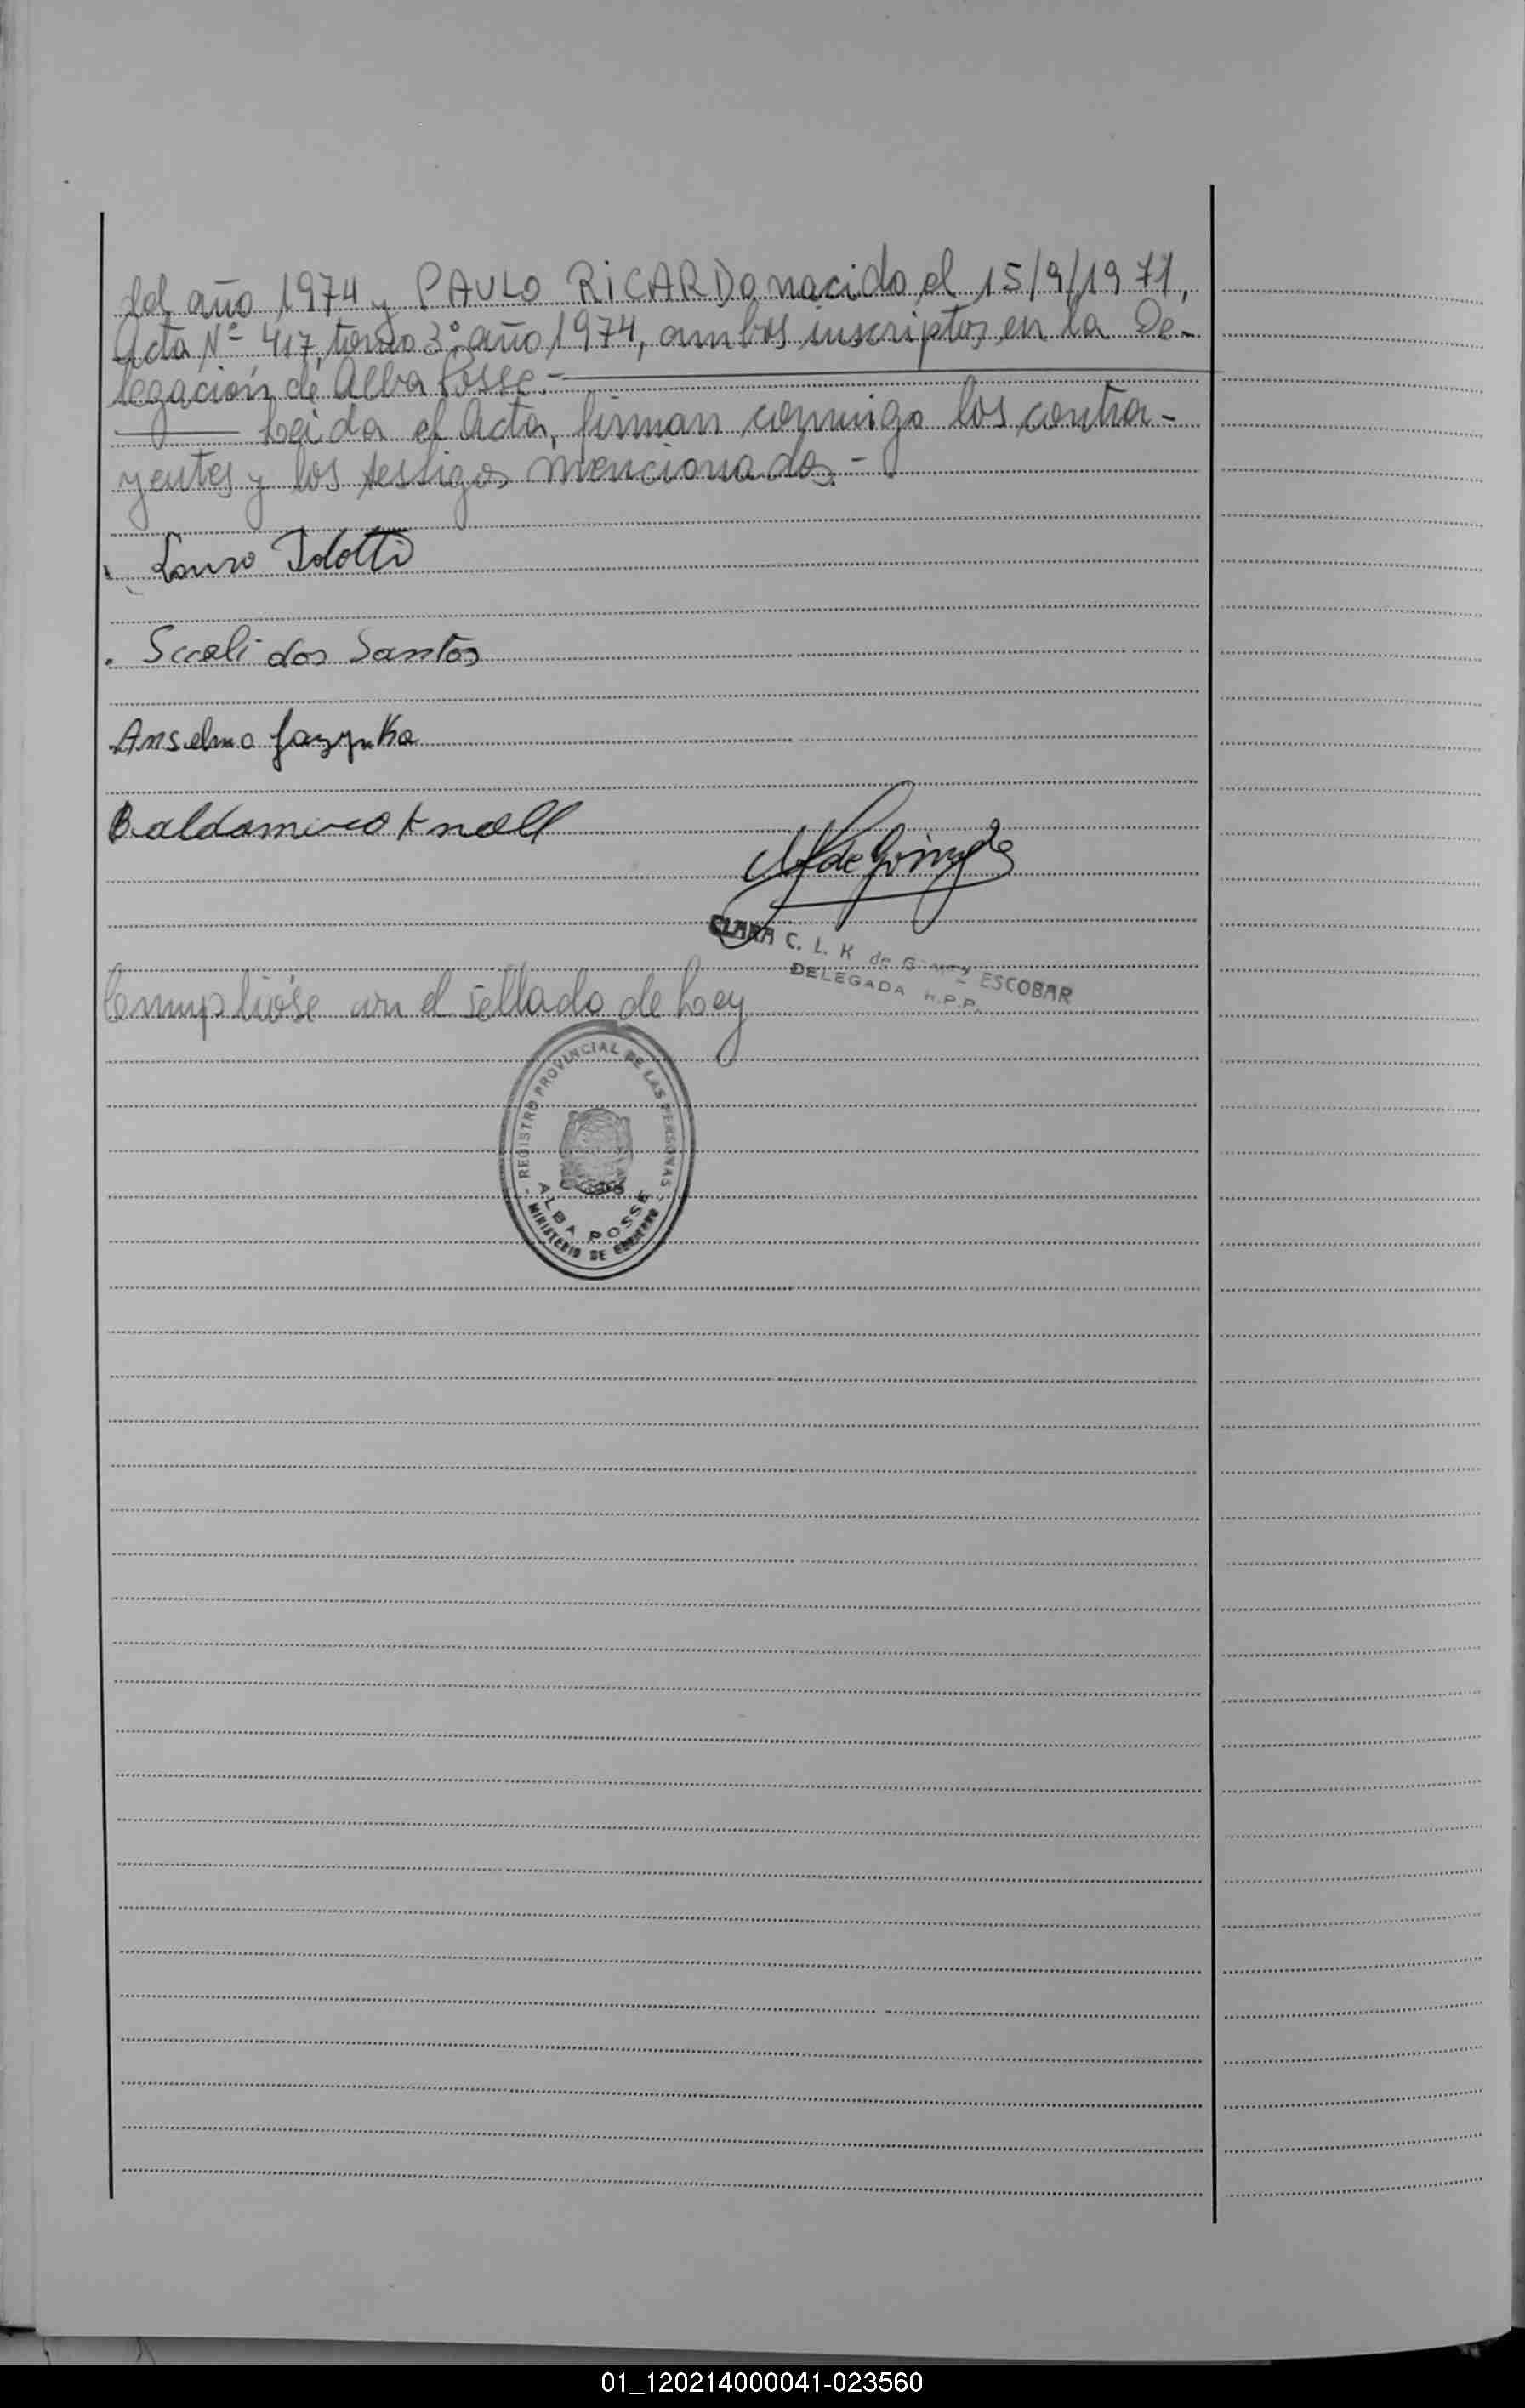 del año 1974 y PAULO RICARDO nacido el 15/9/1971,
Acta Nº 417, tomo 3º año 1974, ambos inscriptos en la De-
legación de Alba Posse.-
Leida el Acta, firman conmigo los contra-
yentes y los testigos mencionados.-
Lauro Idotti
dos Santos
Anselmo
Baldomero Knoll
CLARA C. L. K de ESCOBAR
DELEGADA R.P.P.
Cumplióse con el sellado de Ley
- REGISTRO PROVINCIAL DE LAS PERSONAS -
ALBA POSSE
MINISTERIO DE GOBIERNO
01_120214000041-023560